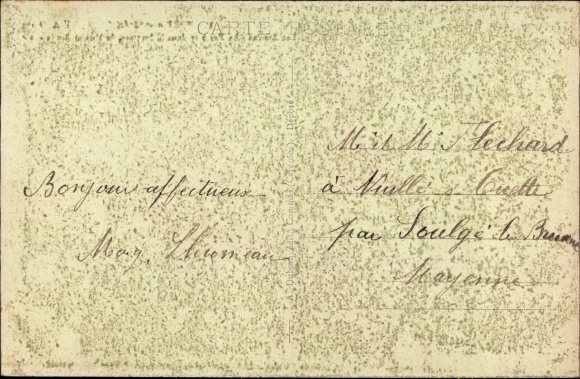 CARTE POSTALE
Bonjour affectueux
Marg. Lhiomeau
Mr et Me Flechard
à Nuillé s. Ouette
par Soulgé le Bruant
Mayenne